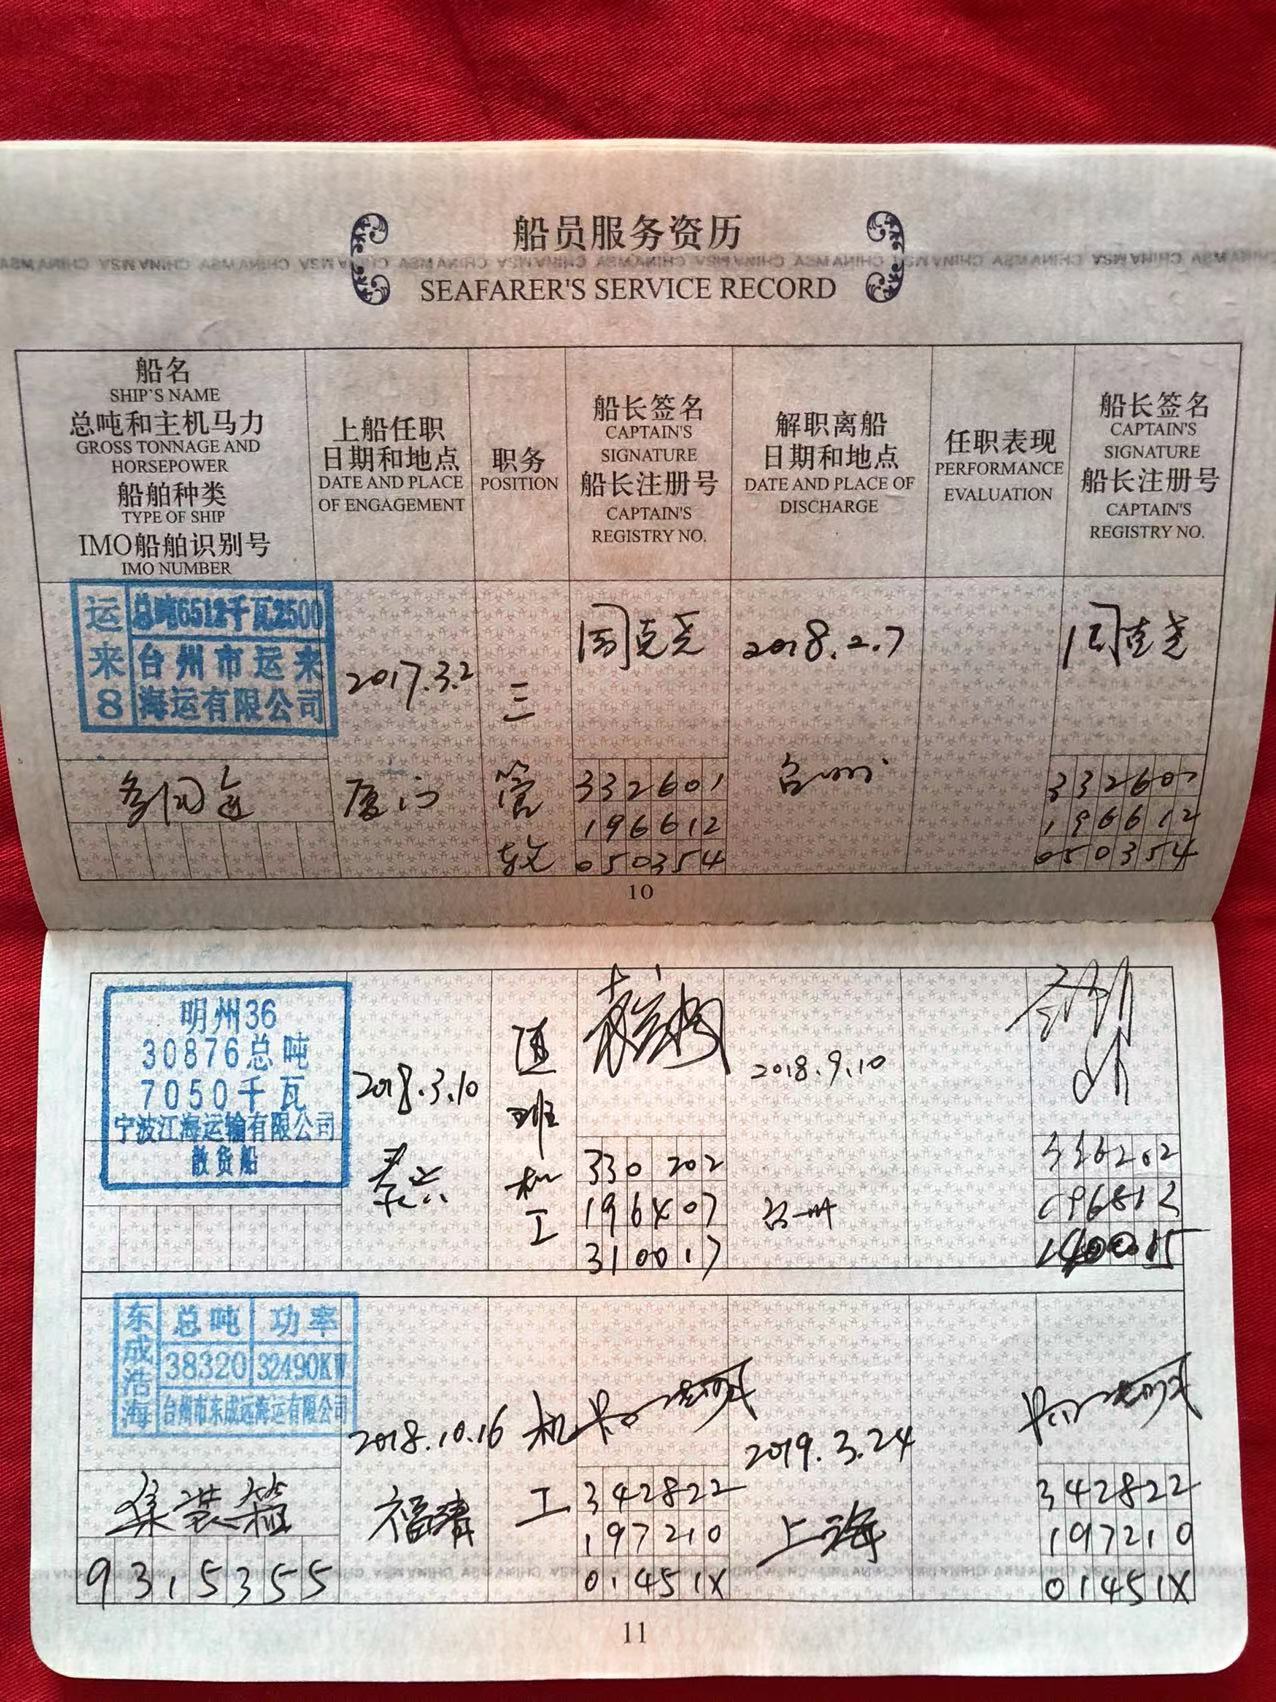 船员服务资历
SEAFARER'S SERVICE RECORD
船名
SHIP'S NAME
总吨和主机马力
GROSS TONNAGE AND
HORSEPOWER
船舶种类
TYPE OF SHIP
IMO船舶识别号
IMO NUMBER
上船任职
日期和地点
DATE AND PLACE
OF ENGAGEMENT
职务
POSITION
船长签名
CAPTAIN'S
SIGNATURE
船长注册号
CAPTAIN'S
REGISTRY NO.
解职离船
日期和地点
DATE AND PLACE OF
DISCHARGE
任职表现
PERFORMANCE
EVALUATION
船长签名
CAPTAIN'S
SIGNATURE
船长注册号
CAPTAIN'S
REGISTRY NO.
运来8
总吨6512千瓦2500
台州市运来
海运有限公司
多用途
2017.3.2
厦门
三管轮
周克尧
332601
196612
050354
2018.2.7
台州
周克尧
332601
196612
050354
10
明州36
30876总吨
7050千瓦
宁波江海运输有限公司
散货船
2018.3.10
秦皇
值班机工
330202
196407
310017
2018.9.10
台州
11
东成浩海
总吨 功率
38320 32490KW
台州市东成远海运有限公司
集装箱
9315355
2018.10.16
福清
机工
342822
197210
01451X
2019.3.24
上海
342822
197210
01451X